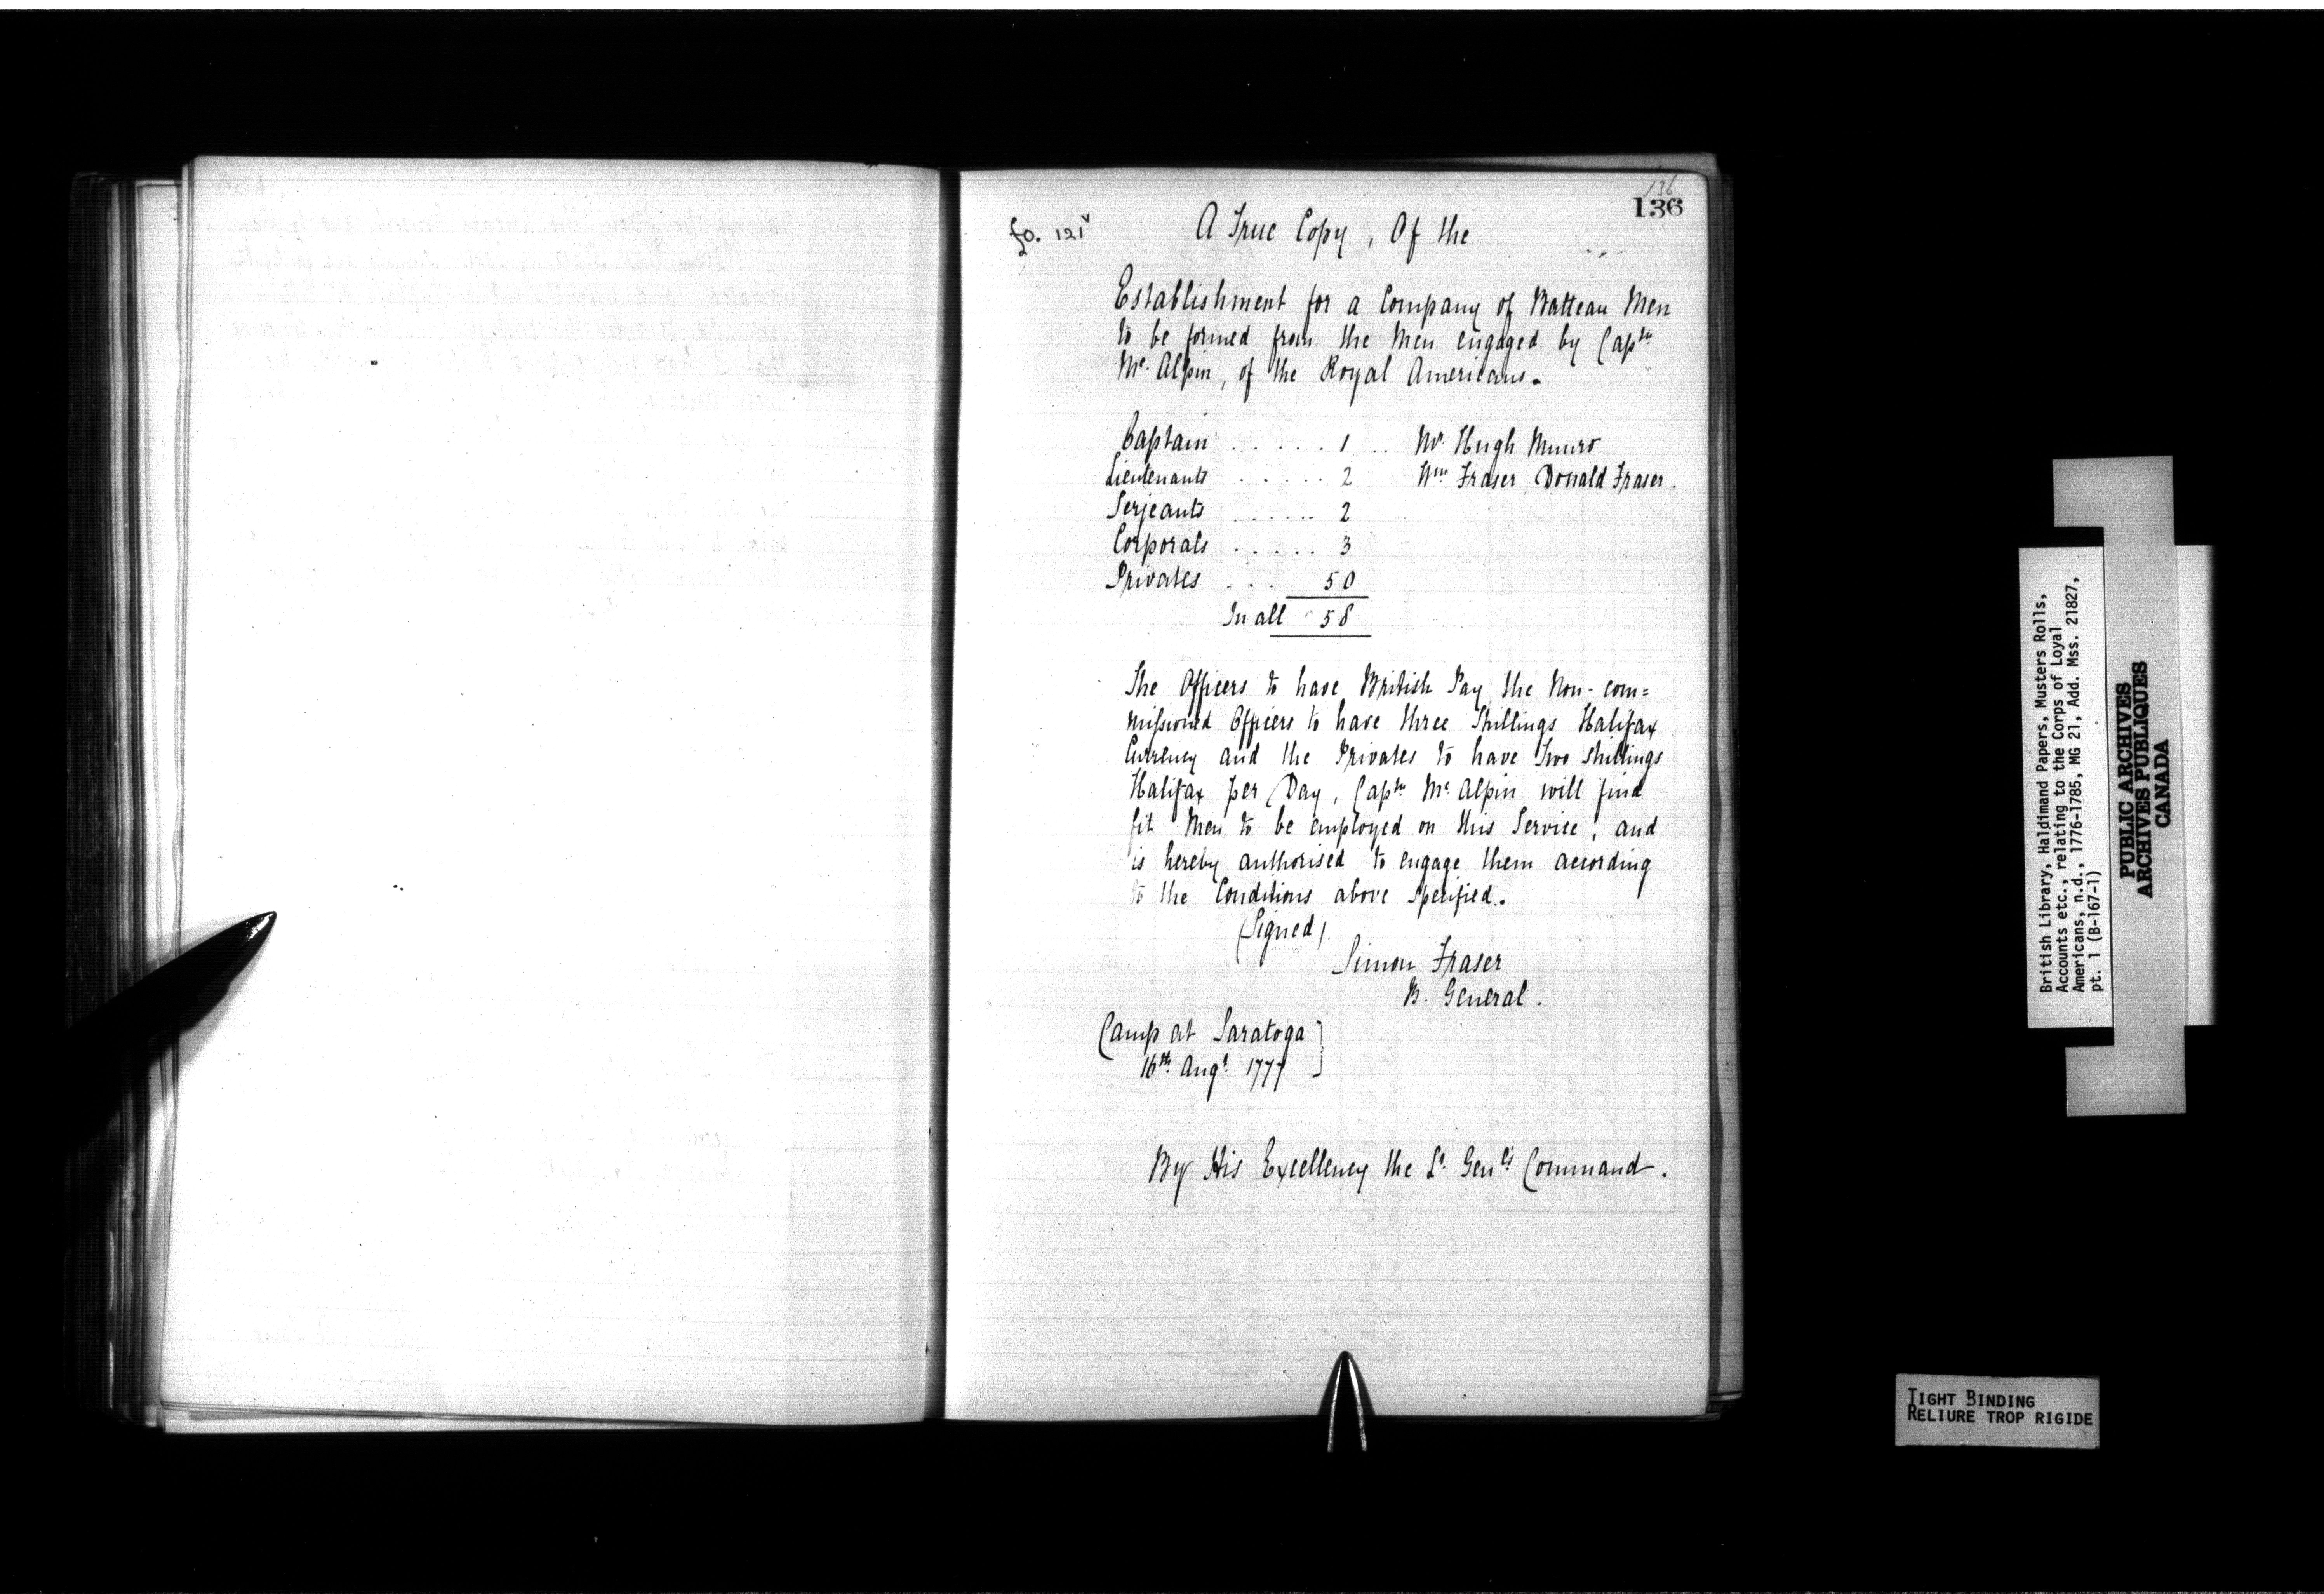 136
136
fo. 121v
A True Copy, Of the
Establishment for a Company of Batteau Men
to be formed from the Men engaged by Captn
Mc. Alpin, of the Royal Americans.
Captain . . . . . . 1 . . Mr. Hugh Munro
Lieutenants . . . . . . 2 Wm Fraser, Donald Fraser.
Serjeants . . . . . . 2
Corporals . . . . . 3
Privates . . . . 50
In all 58
The Officers to have British Pay, the Non-com=
missioned Officers to have three Shillings Halifax
Currency and the Privates to have Two Shillings
Halifax per Day, Captn Mc. Alpin will find
fit Men to be employed on this Service, and
is hereby authorised to engage them according
to the Conditions above Specified.
(Signed)
Simon Fraser
B. General.
Camp at Saratoga
16th Augt. 1777
By His Excellency the Lt. Genl's Command.
British Library, Haldimand Papers, Musters Rolls,
Accounts etc., relating to the Corps of Loyal
Americans, n.d., 1776-1785, MG 21, Add. Mss. 21827,
pt. 1 (B-167-1)
PUBLIC ARCHIVES
ARCHIVES PUBLIQUES
CANADA
TIGHT BINDING
RELIURE TROP RIGIDE